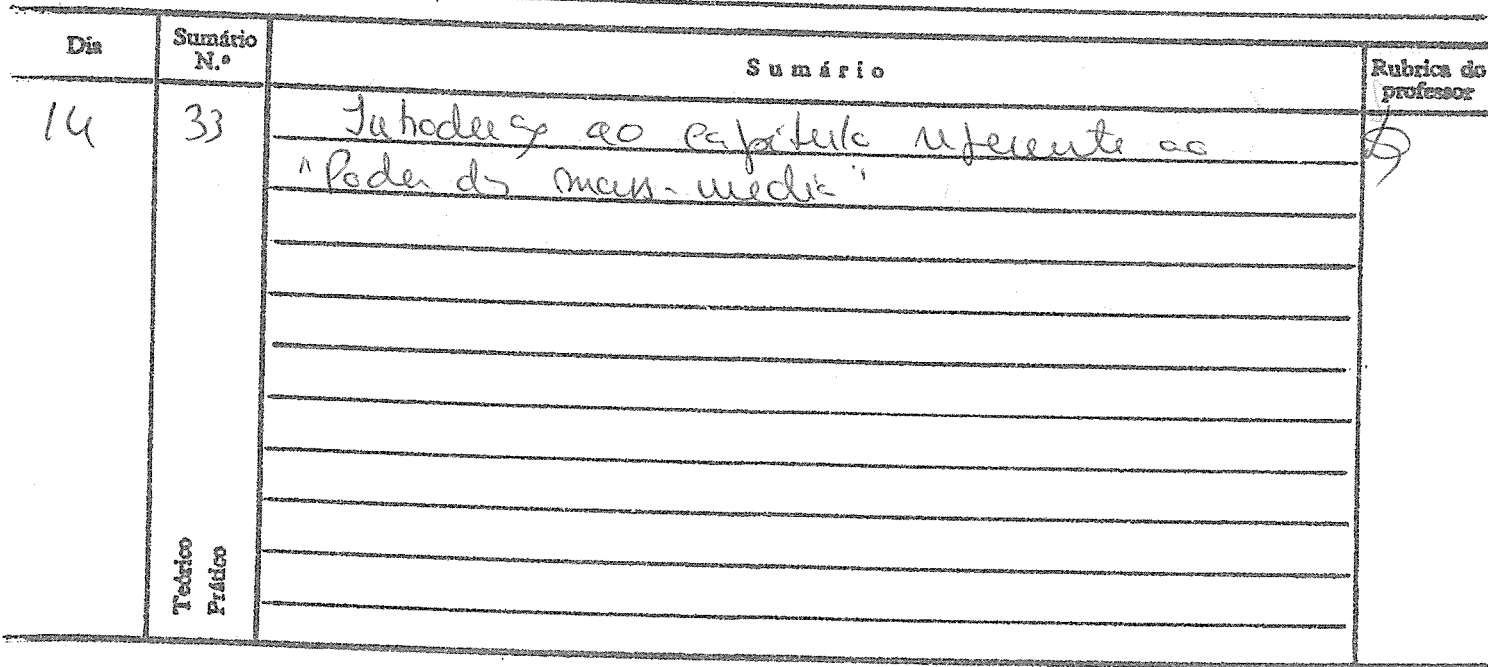 Dia
Sumário N.º
Sumário
Rubrica do professor
14
33
Introdução ao capítulo referente ao
"Poder dos mass-media"
Teórico
Prático